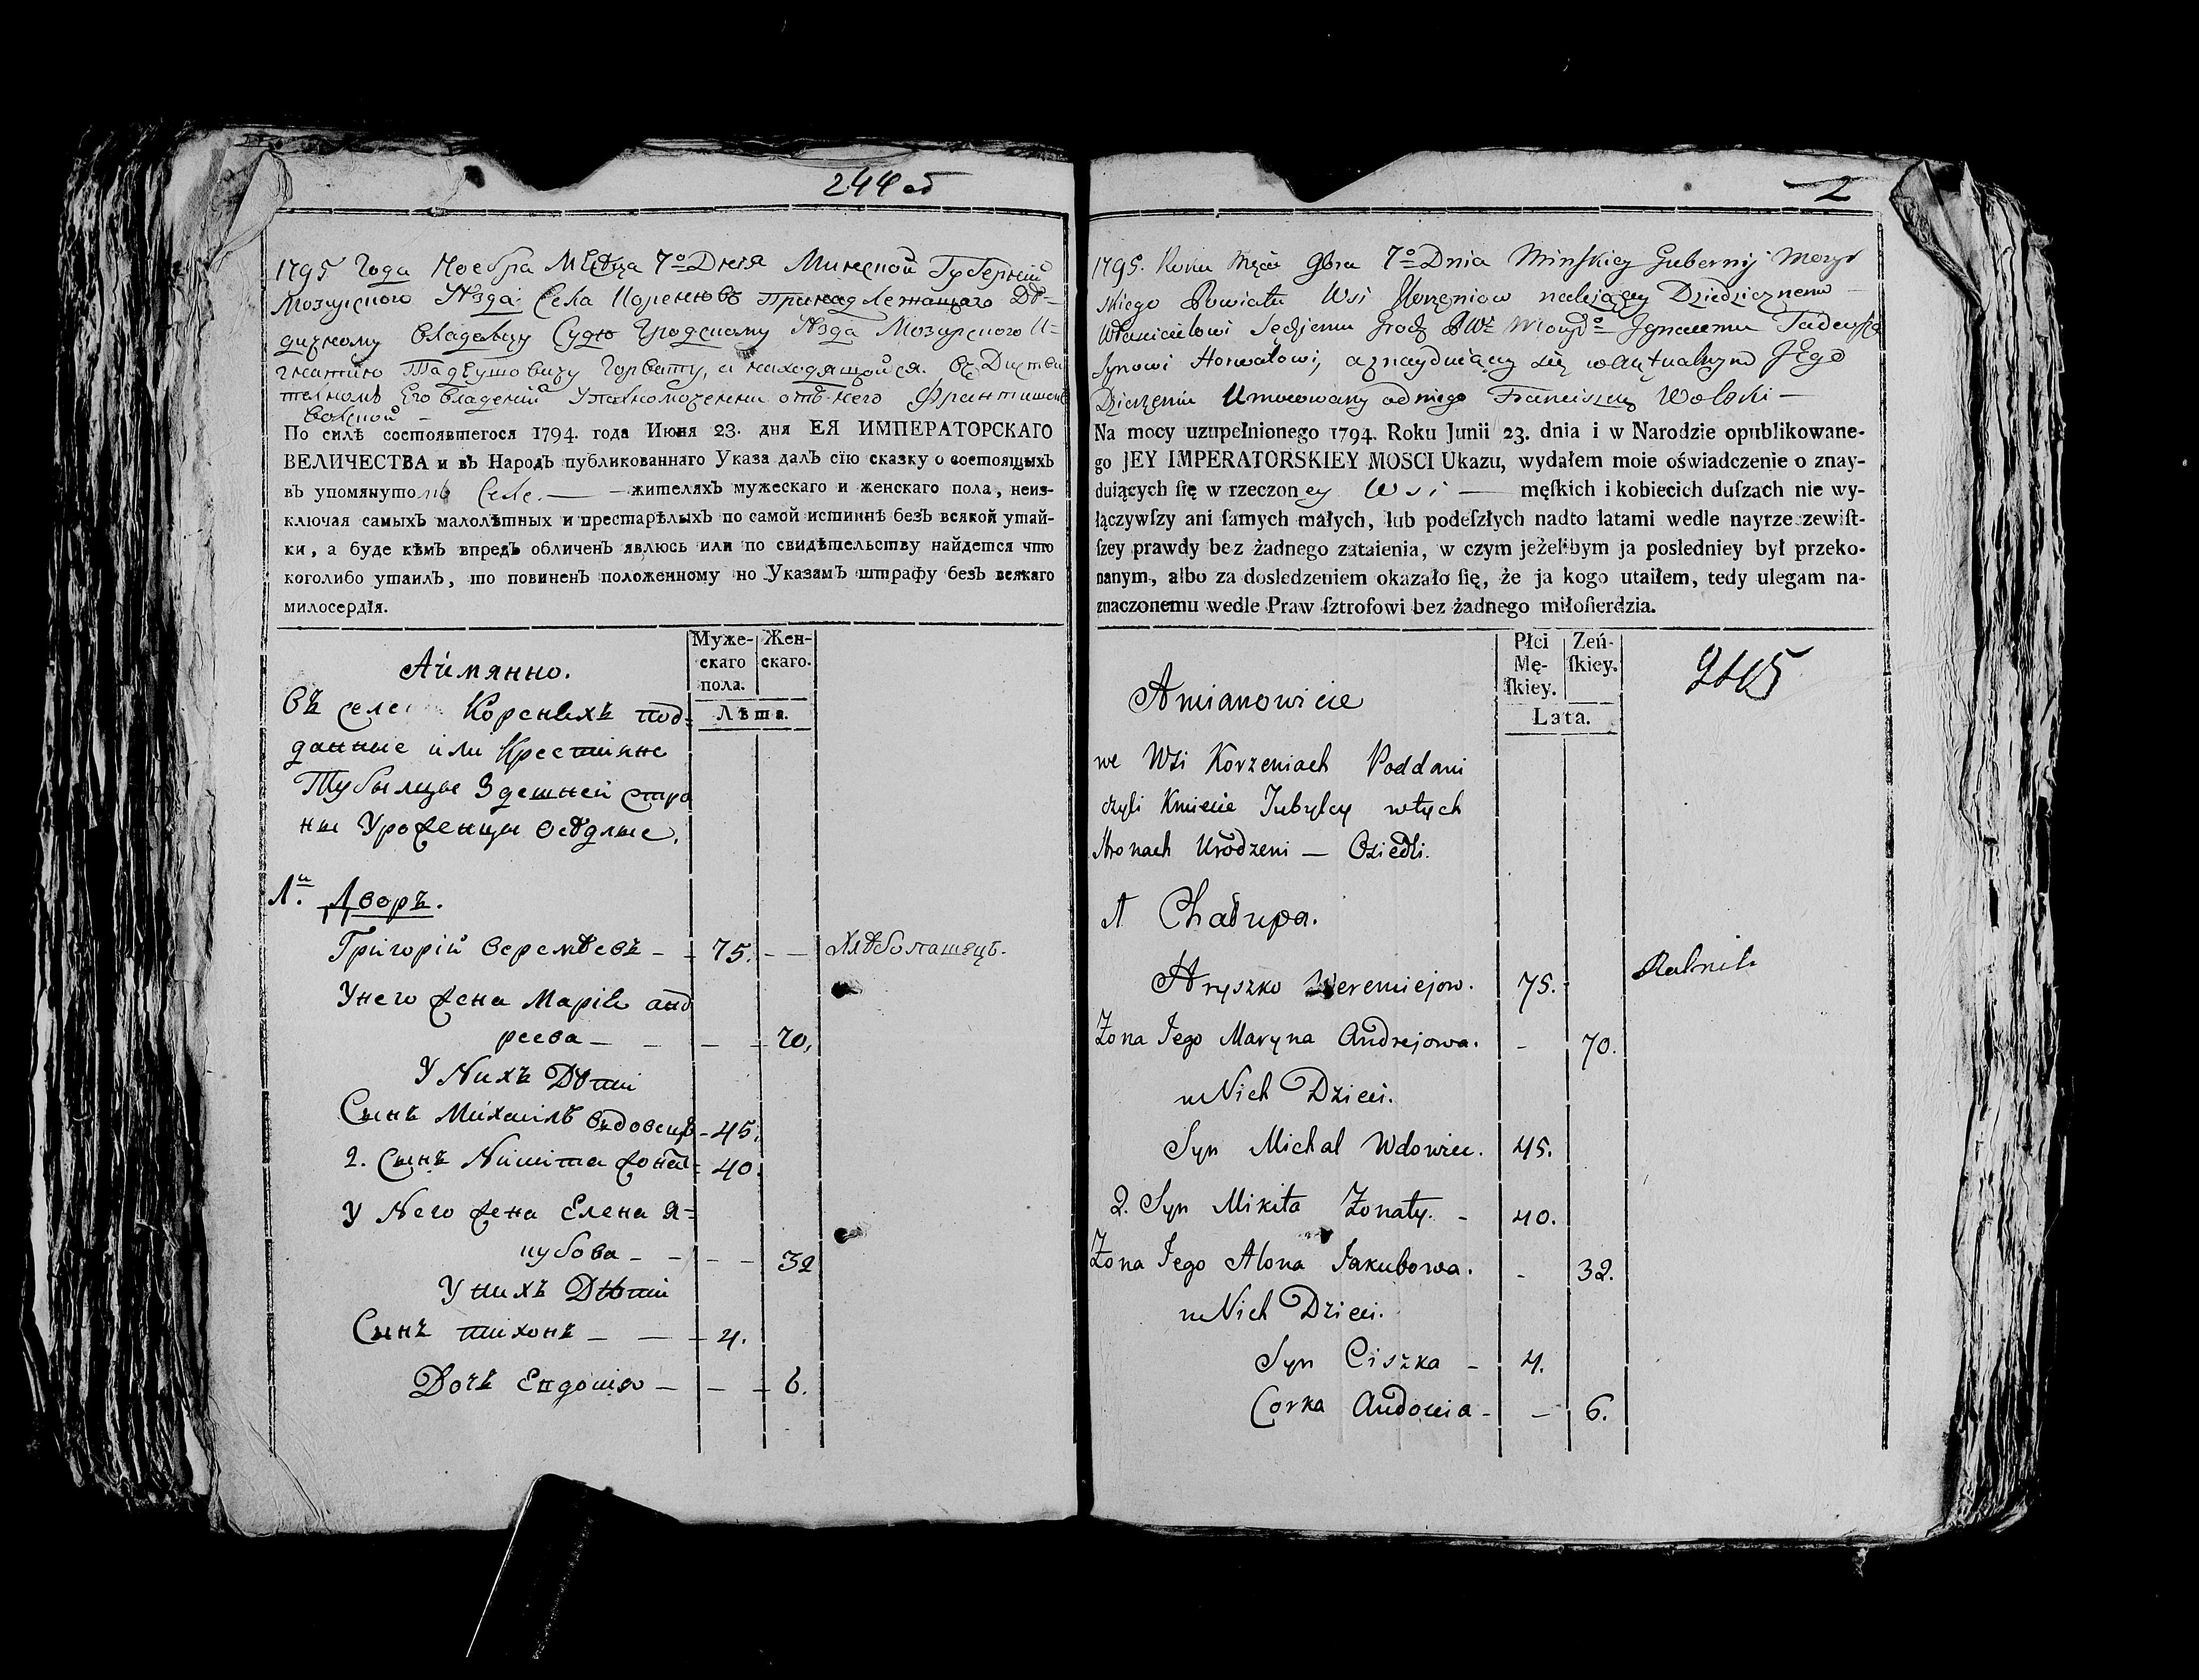 244 об
1795 Года Ноебра Мѣсѣца 7º Дня Минской Губерніи
Мозирского Уѣзда Села Коренювъ принадлежащаго Дѣ-
дичному Владѣльцу Судю Гродскому Уѣзда Мозирского И=
гнатию Тадеушовичу Горвату, а находящойся въ Дистви
телномъ Его владеніи Уполномоченни отъ него Францишекъ
Волской –
По силѣ состоявшегося 1794. года Июня 23. дня ЕЯ ИМПЕРАТОРСКАГО
ВЕЛИЧЕСТВА и въ Народъ публикованнаго Указа далъ сїю сказку о состоящыхъ
въ упомянутомъ Селе. — жителяхъ мужескаго и женскаго пола, неиз-
ключая самыхъ малолѣтных и престарѣлыхъ по самой истиннѣ безъ всякой утай-
ки, а буде кѣмъ впредъ обличенъ явлюсь или по свидѣтельству найдется что
коголибо утаилъ, то повиненъ положенному по Указамъ штрафу безъ всякаго
милосердїя.
Муже-
скаго
пола.
Жен-
скаго.
Лѣта.
Аймянно.
Въ селе Кореняхъ под=
данные или Крестияне
Тубылцы Здешней стро
ны Уроженцы Осѣдлые.
1й. Дворъ.
Григорій Веремѣевъ – – 75. – – Хлѣбопашецъ.
Унего жена Марія анд
реева – – – – 70,
У Nихъ Дѣти
Сынъ Михаилъ вдовецъ – 45.
2. Сынъ Никита жонат – 40.
У Nего жена Елена Я=
кубова – – – – 32
У нихъ Дѣти
Сынъ тихонъ – – – 4.
Дочь Евдокія – – – 6.
2
1795. Roku Mca 9bra 7º Dnia Minskiey Gubernij Mozyr
skiego Powiatu Wsi Korzeniow należącey Dziedzicznemu
Własicielowi Sędziemu Grodz Ignacemu Tadeusza
Synowi Horwatowi, a znayduiący się w aktualnym Jego
Dzierżeniu Umocowany od niego Franciszek Wolski –
Na mocy uzupełnionego 1794. Roku Junii 23. dnia i w Narodzie opublikowane-
go JEY IMPERATORSKIEY MOSCI Ukazu, wydałem moie oświadczenie o znay-
duiących ſię w rzeczoney Wsi — męſkich i kobiecich duſzach nie wy-
łączywſzy ani ſamych małych, lub podeſzłych nadto latami wedle nayrzeczewiſt-
ſzey prawdy bez żadnego zataienia, w czym jeżelibym ja posledniey był przeko-
nanym, albo za dosledzeniem okazało ſię, że ja kogo utaiłem, tedy ulegam na-
znaczonemu wedle Praw ſztrofowi bez żadnego miłoſierdzia.
Płci
Mę-
ſkiey.
Zeń-
ſkiey.
Lata.
245
Amianowicie
we Wsi Korzeniach Poddani
czyli Kmiecie Tubylcy w tych
Stronach Urodzeni — Osiedli.
1 Chałupa.
Hryszko Weremiejow. 75. Rolnik
Zona Jego Maryna Andrejowa. – 70.
u Nich Dzieci.
Syn Michal Wdowiec. 45.
2. Syn Mikita Zonaty. – 40.
Zona Jego Alona Jakubowa. – 32.
u Nich Dzieci.
Syn Ciszka – 4.
Corka Audocia – – 6.